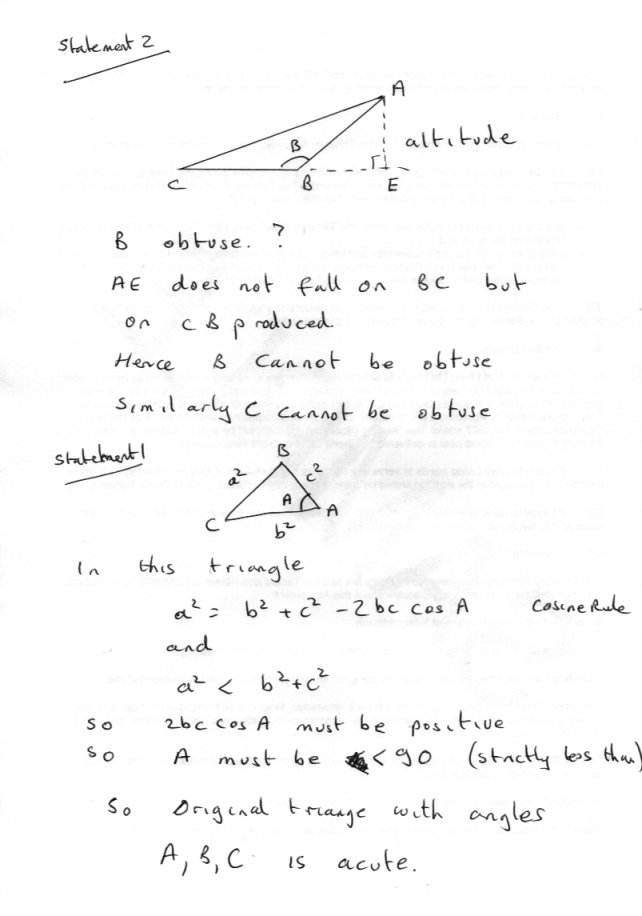 Statement 2
A
B
altitude
C
B
E
B obtuse. ?
AE does not fall on BC but
on CB produced.
Hence B cannot be obtuse
Similarly C cannot be obtuse
Statement 1
B
a² c²
A
C A
b²
In this triangle
a² = b² + c² - 2bc cos A Cosine Rule
and
a² < b² + c²
so 2bc cos A must be positive
so A must be < 90 (strictly less than)
So Original triange with angles
A, B, C is acute.